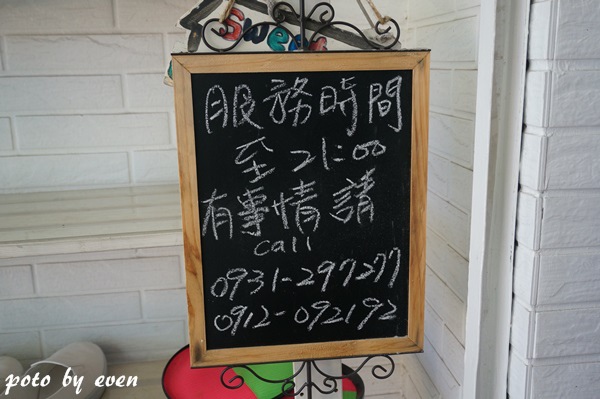 Sweet
服務時間
至21:00
有事情請
call
0931-297277
0912-092192
poto by even